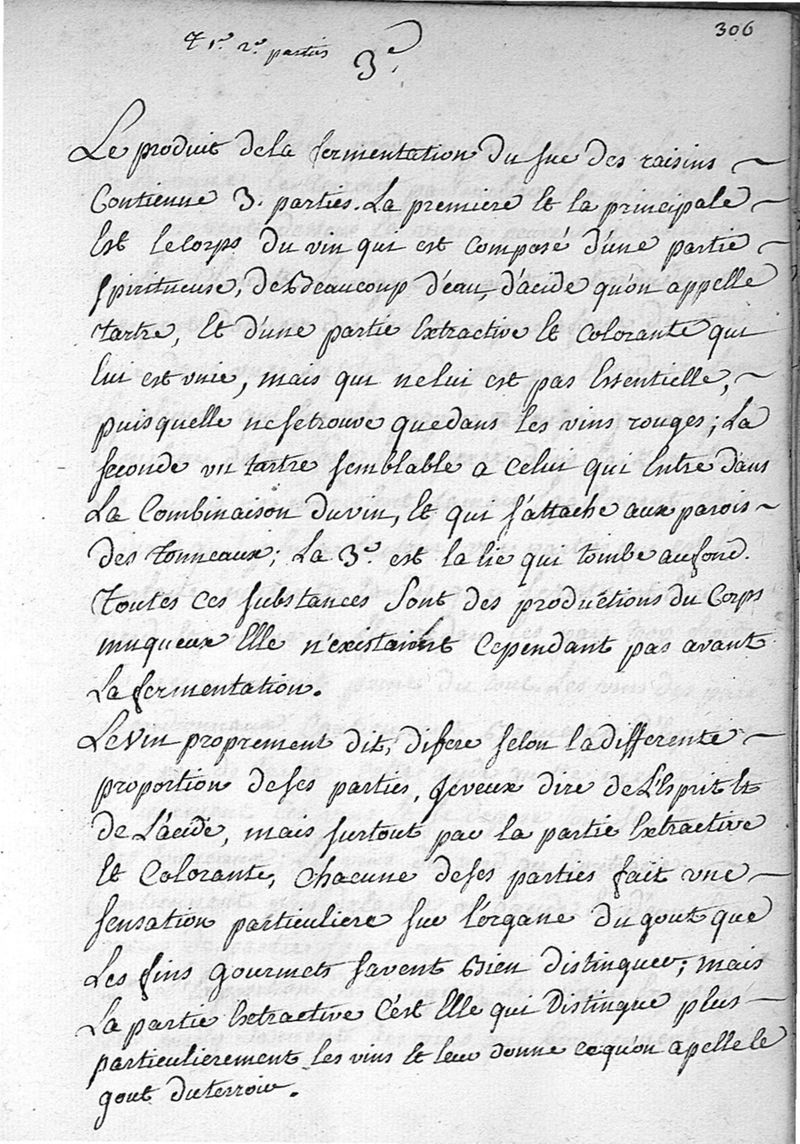 306
& 1.re 2.e parties
3.e
Le produit de la fermentation du suc des raisins ~
Contienne 3. parties. La premiere Et la principale ~
Est le corps du vin qui est composé d'une partie ~
spiritueuse, de Beaucoup d'eau, d'acide qu'on appelle
tartre, Et d'une partie Extractive Et colorante qui
lui est unie, mais qui ne lui est pas Essentielle, ~
puisquelle ne se trouve que dans les vins rouges; La
seconde un tartre semblable a celui qui Entre dans
La Combinaison du vin, Et qui s'attache aux parois ~
des Tonneaux; La 3.e est la lie qui tombe au fond.
Toutes ces substances sont des productions du Corps
muqueux Elle n'existaient Cependant pas avant
La fermentation.
Le vin proprement dit, difere selon la differente ~
proportion de ses parties, je veux dire de L'Esprit Et
de L'acide, mais surtout par la partie Extractive
Et Colorante, chacune de ses parties fait une ~
sensation particuliere sur l'organe du gout que
Les fins gourmets savent Bien distinguer; mais
La partie Extractive C'est Elle qui Distingue plus ~
particulierement les vins Et leur donne ce qu'on apelle le
gout du terroir.